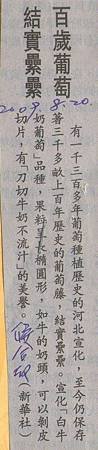 百歲葡萄
結實纍纍
2009.8.20.
有一千三百多年葡萄種植歷史的河北宣化，至今仍保存
著三千多畝上百年歷史的葡萄藤，結實纍纍。宣化「白牛
奶葡萄」品種，果粒呈長橢圓形，如牛的奶頭，可以剝皮
切片，有「刀切牛奶不流汁」的美譽。
（新華社）